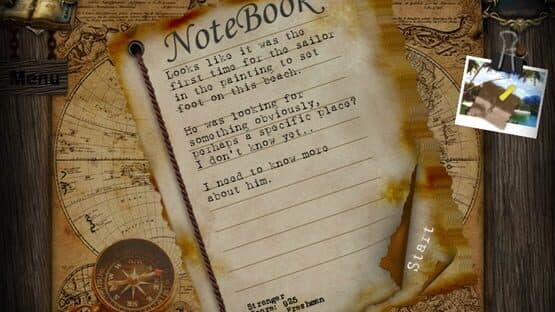 NOTEBOOK
Menu
Looks like it was the
first time for the sailor
in the painting to set
foot on this beach.
He was looking for
something obviously,
perhaps a specific place?
I don't know yet..
I need to know more
about him.
Start
Stranger
Score: 925
Freshman